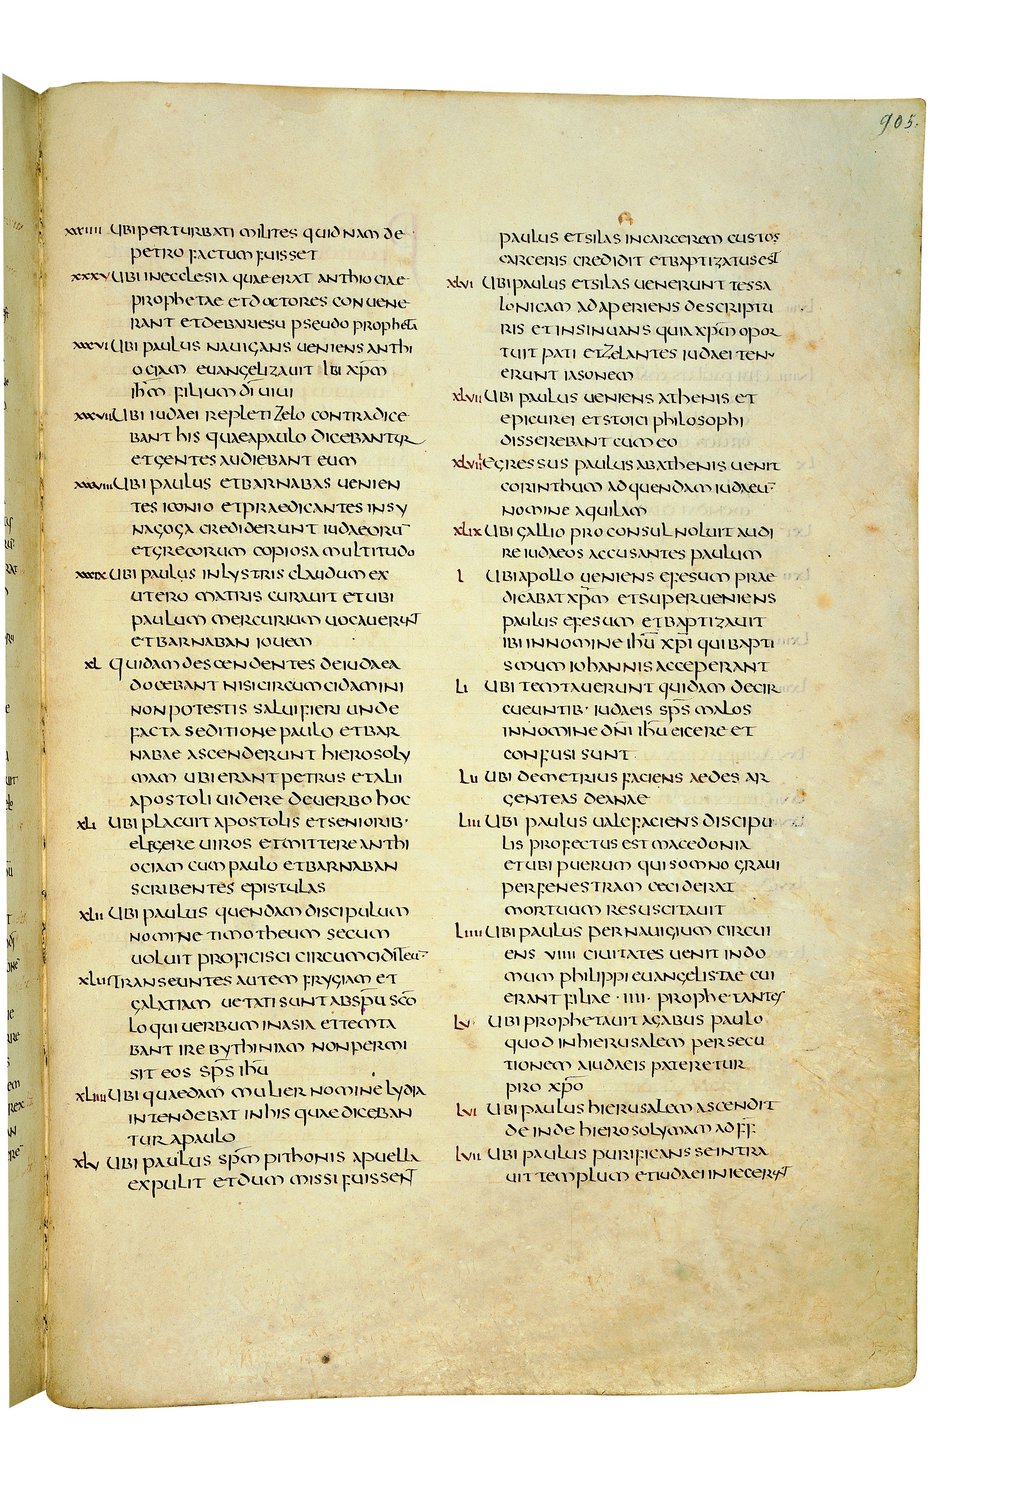 905.
xxxiiii ubi perturbati milites quid nam de
petro factum fuisset
xxxv ubi in ecclesia quae erat anthiociae
prophetae et doctores conuene
rant et de bariesu pseudo propheta
xxxvi ubi paulus nauigans ueniens anthi
ociam euangelizauit ibi xp̅m
ih̅m filium di̅ uiui
xxxvii ubi iudaei repleti zelo contradice
bant his quae a paulo dicebantur
et gentes audiebant eum
xxxviii ubi paulus et barnabas uenien
tes iconio et praedicantes in sy
nagoga crediderunt iudaeoru̅
et grecorum copiosa multitudo
xxxix ubi paulus in lystris claudum ex
utero matris curauit et ubi
paulum mercurium uocauerunt
et barnaban iouem
xl quidam descendentes de iudaea
docebant nisi circumcidamini
non potestis salui fieri unde
facta seditione paulo et bar
nabae ascenderunt hierosoly
mam ubi erant petrus et alii
apostoli uidere de uerbo hoc
xli ubi placuit apostolis et seniorib·
elegere uiros et mittere anthi
ociam cum paulo et barnaban
scribentes epistulas
xlii ubi paulus quendam discipulum
nomine timotheum secum
uoluit proficisci circumcidit eu̅
xliii transeuntes autem frygiam et
galatiam uetati sunt ab sp̅u sc̅o
loqui uerbum in asia et temta
bant ire bythiniam non permi
sit eos sp̅s ih̅u
xliiii ubi quaedam mulier nomine lydia
intendebat in his quae diceban
tur a paulo
xlv ubi paulus sp̅m pithonis a puella
expulit et dum missi fuissent
paulus et silas in carcerem custos
carceris credidit et baptizatus est
xlvi ubi paulus et silas uenerunt tessa
lonicam adaperiens de scriptu
ris et insinuans quia xp̅m opor
tuit pati et zelantes iudaei ten
erunt iasonem
xlvii ubi paulus ueniens athenis et
epicurei et stoici philosophi
disserebant cum eo
xlviii egressus paulus ab athenis uenit
corinthum ad quendam iudaeu̅
nomine aquilam
xlix ubi gallio proconsul noluit audi
re iudaeos accusantes paulum
l ubi apollo ueniens efesum prae
dicabat xp̅m et superueniens
paulus efesum et baptizauit
ibi in nomine ih̅u xp̅i qui bapti
smum iohannis acceperant
li ubi temtauerunt quidam de cir
cueuntib· iudaeis sp̅s malos
in nomine dn̅i ih̅u eicere et
confusi sunt
lii ubi demetrius faciens aedes ar
genteas deanae
liii ubi paulus ualefaciens discipu
lis profectus est macedonia
et ubi puerum qui somno graui
per fenestram ceciderat
mortuum resuscitauit
liiii ubi paulus per nauigium circui
ens viiii ciuitates uenit in do
mum philippi euangelistae cui
erant filiae ·iiii· prophetantes
lv ubi prophetauit agabus paulo
quod in hierusalem persecu
tionem a iudaeis pateretur
pro xp̅o
lvi ubi paulus hierusalem ascendit
deinde hierosolymam ad ff̅
lvii ubi paulus purificans se intra
uit templum et iudaei iniecerunt